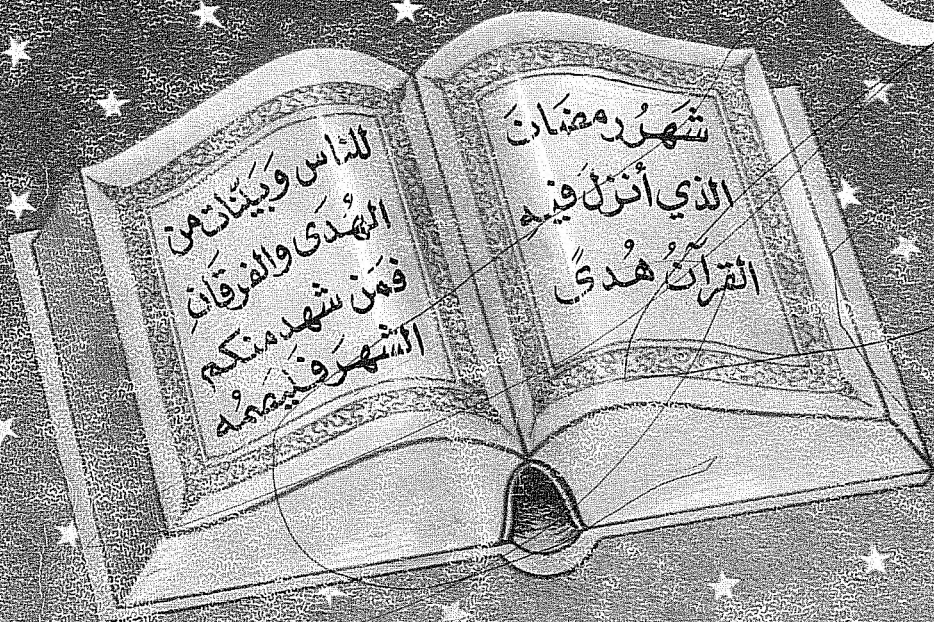 شَهرُ رمضَانَ
الذي أُنزلَ فيه
القرآنُ هُدىً
للنَّاس وَبَيَنّات من
الهُدَى والفرقَانِ
فَمَن شهد منكم
الشهرَ فليَصمُه